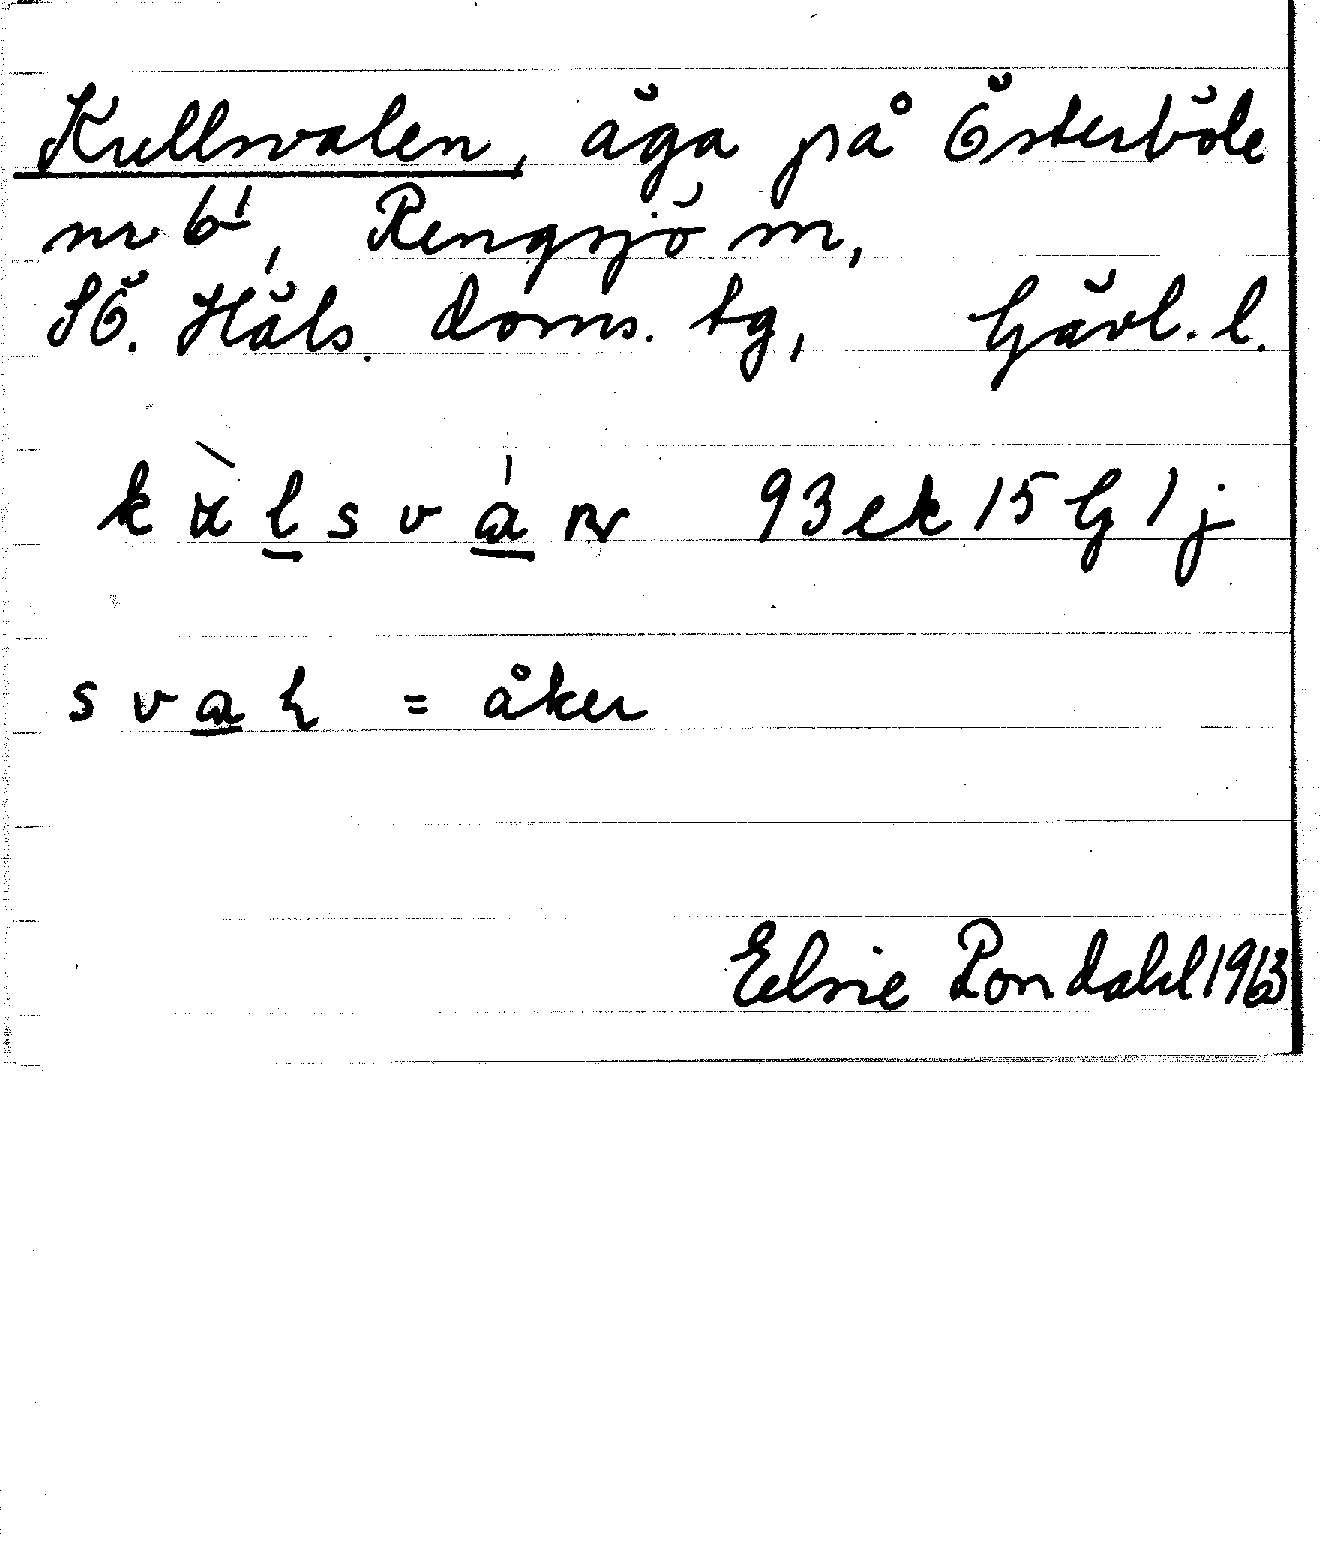 Kullsvalen, äga på Österböle
nr 6¹, Rengsjö sn,
SÖ. Häls. doms. tg, Gävl. l.
93 ek 15 G 1 j
= åker
Elsie Rondahl 1963